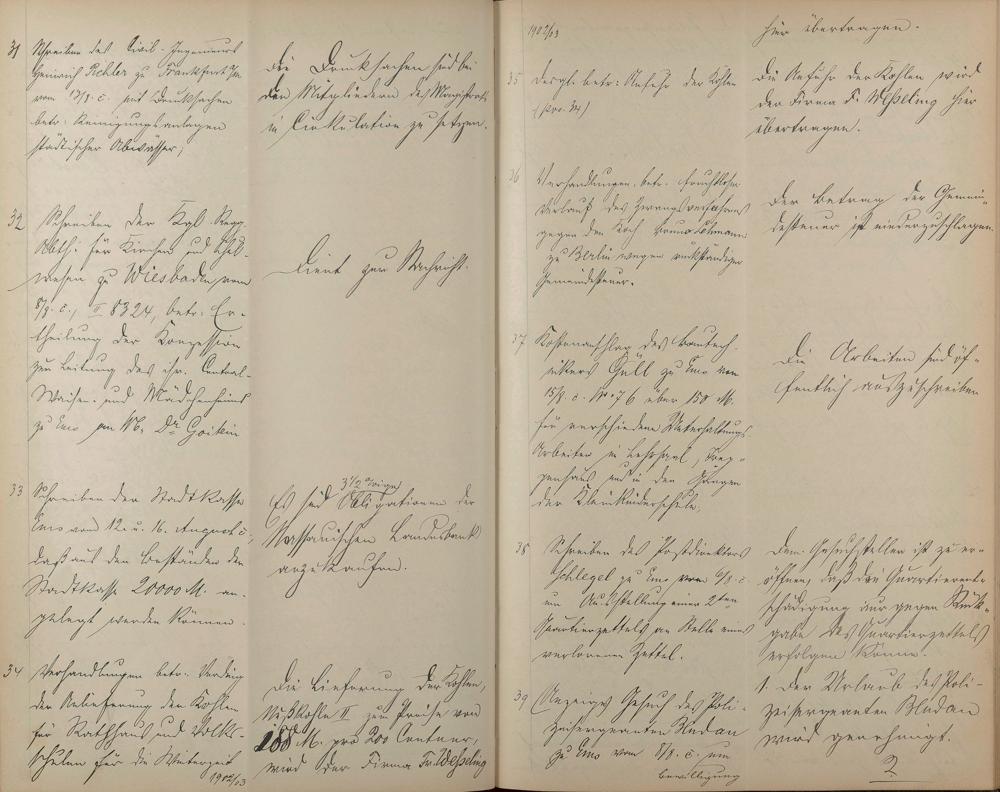 31 Schreiben des Civil-Ingenieurs
Heinrich Pichler zu Frankfurt
vom 13/8. c. mit Drucksachen
betr: Reinigungsanlagen
städtischer Abwässer,
Die Drucksachen sind bei
den Mitgliedern des Magistrats
in Cirkulation zu setzen.
32 Schreiben der Kgl. Regg.
Abth: für Kirchen und
wesen zu Wiesbaden vom
8/8. c., II 8324, betr: Er-
theilung der Konzession
zur Leitung des isr. Central-
Waisen- und Mädchenheims
zu Ems an Dr Goitein
Dient zur Nachricht.
33 Schreiben der Stadtkasse
Ems vom 12. u. 16. August c.,
daß aus den Beständen der
Stadtkasse 20000 M. an-
gelegt werden können.
3 1/2 %oige
Es sind Obligationen der
Nassauischen Landesbank
anzukaufen.
34 Verhandlungen betr: Verding
der Anlieferung der Kohlen
für Rathhaus und Volks-
schulen für die Winterzeit
1902/03
Die Lieferung der Kohlen,
Nußkohle II zum Preise von
188 M. pro 200 Centner,
wird der Firma Fr. Wesseling
1902/03
hier übertragen.
35 desgl: betr: Anfuhr der Kohlen
(pos. 34)
Die Anfuhr der Kohlen wird
der Firma F. Weßeling hier
übertragen.
36 Verhandlungen betr: fruchtlosen
Verlauf des Zwangsverfahrens
gegen den Koch Bruno Lehmann
zu Berlin wegen rückständiger
Gemeindesteuer.
Der Betrag der Gemein-
desteuer ist niederzuschlagen.
37 Kostenanschlag des Bautech-
nikers Güll zu Ems vom
15/8. c. No 76 über 150 M.
für verschiedene Unterhaltungs-
Arbeiten in Lehrsaal, Trep-
penhaus und in den Gängen
der Kleinkinderschule.
Die Arbeiten sind öf-
fentlich auszuschreiben
38 Schreiben des Postdirektors
Schlegel zu Ems vom 6/8. c.
um Ausstellung eines 2ten
Quartierzettels an Stelle eines
verlorenen Zettel.
Dem Gesuchsteller ist zu er-
öffnen, daß die Quartierent-
schädigung nur gegen Rück-
gabe des Quartierzettels
erfolgen könne.
39 (Anzeige) Gesuch des Poli-
zeisergeanten
zu Ems vom 8/8. c. um
Bewilligung
1. Der Urlaub des Poli-
zeisergeanten
wird genehmigt.
2